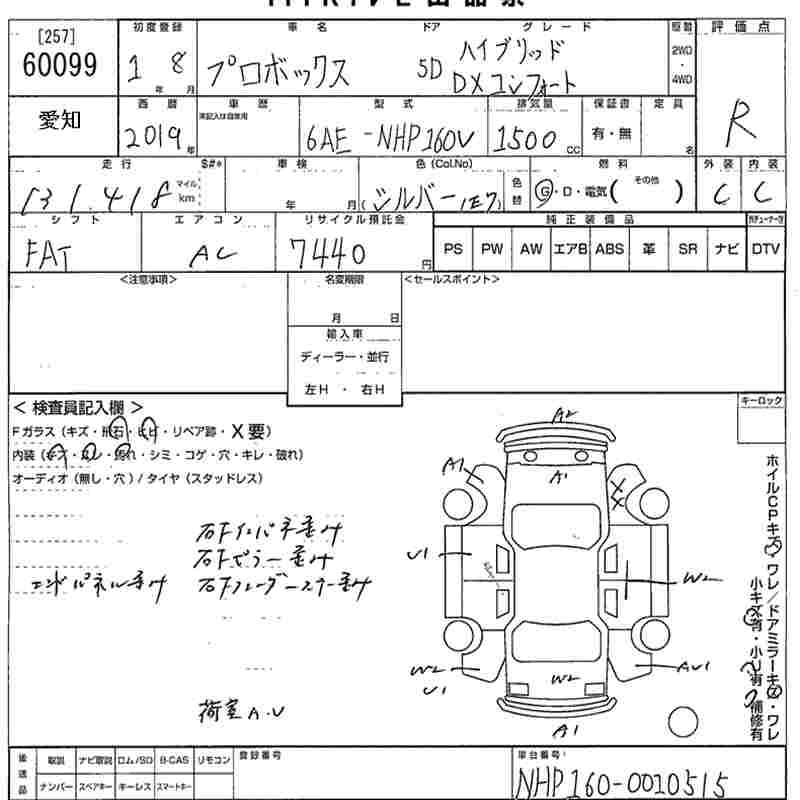 [257]
60099
初度登録 車名 ドア グレード 駆動 評価点
1年 8月 プロボックス 5D ハイブリッド 2WD・4WD
DXコンフォート
愛知
西暦 車歴 型式 排気量 保証書 定員
2019年 未記入は自家用 6AE-NHP160V 1500cc 有・無 名 R
走行 $#* 車検 色(Col.No) 色替 燃料 外装 内装
131,418 マイル km 年 月 シルバー(1E7) G・D・電気(その他 ) C C
シフト エアコン リサイクル預託金 純正装備品
FAT AC 7440円 PS PW AW エアB ABS 革 SR ナビ DTV
<注意事項> 名変期限 <セールスポイント>
月 日
輸入車
ディーラー・並行
左H・右H
<検査員記入欄> キーロック
Fガラス(キズ・飛石・ヒビ・リペア跡・X要)
内装(キズ・スレ・汚れ・シミ・コゲ・穴・キレ・破れ)
オーディオ(無し・穴)/タイヤ(スタッドレス)
A2
A1 A1 XX
U1 W2
W2 U1 W2 AU1
A1
エンドパネル歪み
荷室A.U
ホイルCPキズ・ワレ/ドアミラーキズ・ワレ
小キズ有・小U有・補修有
後送品 取説 ナビ取説 ロム/SD B-CAS リモコン 登録番号 車台番号
ナンバー スペアキー キーレス スマートキー NHP160-0020515